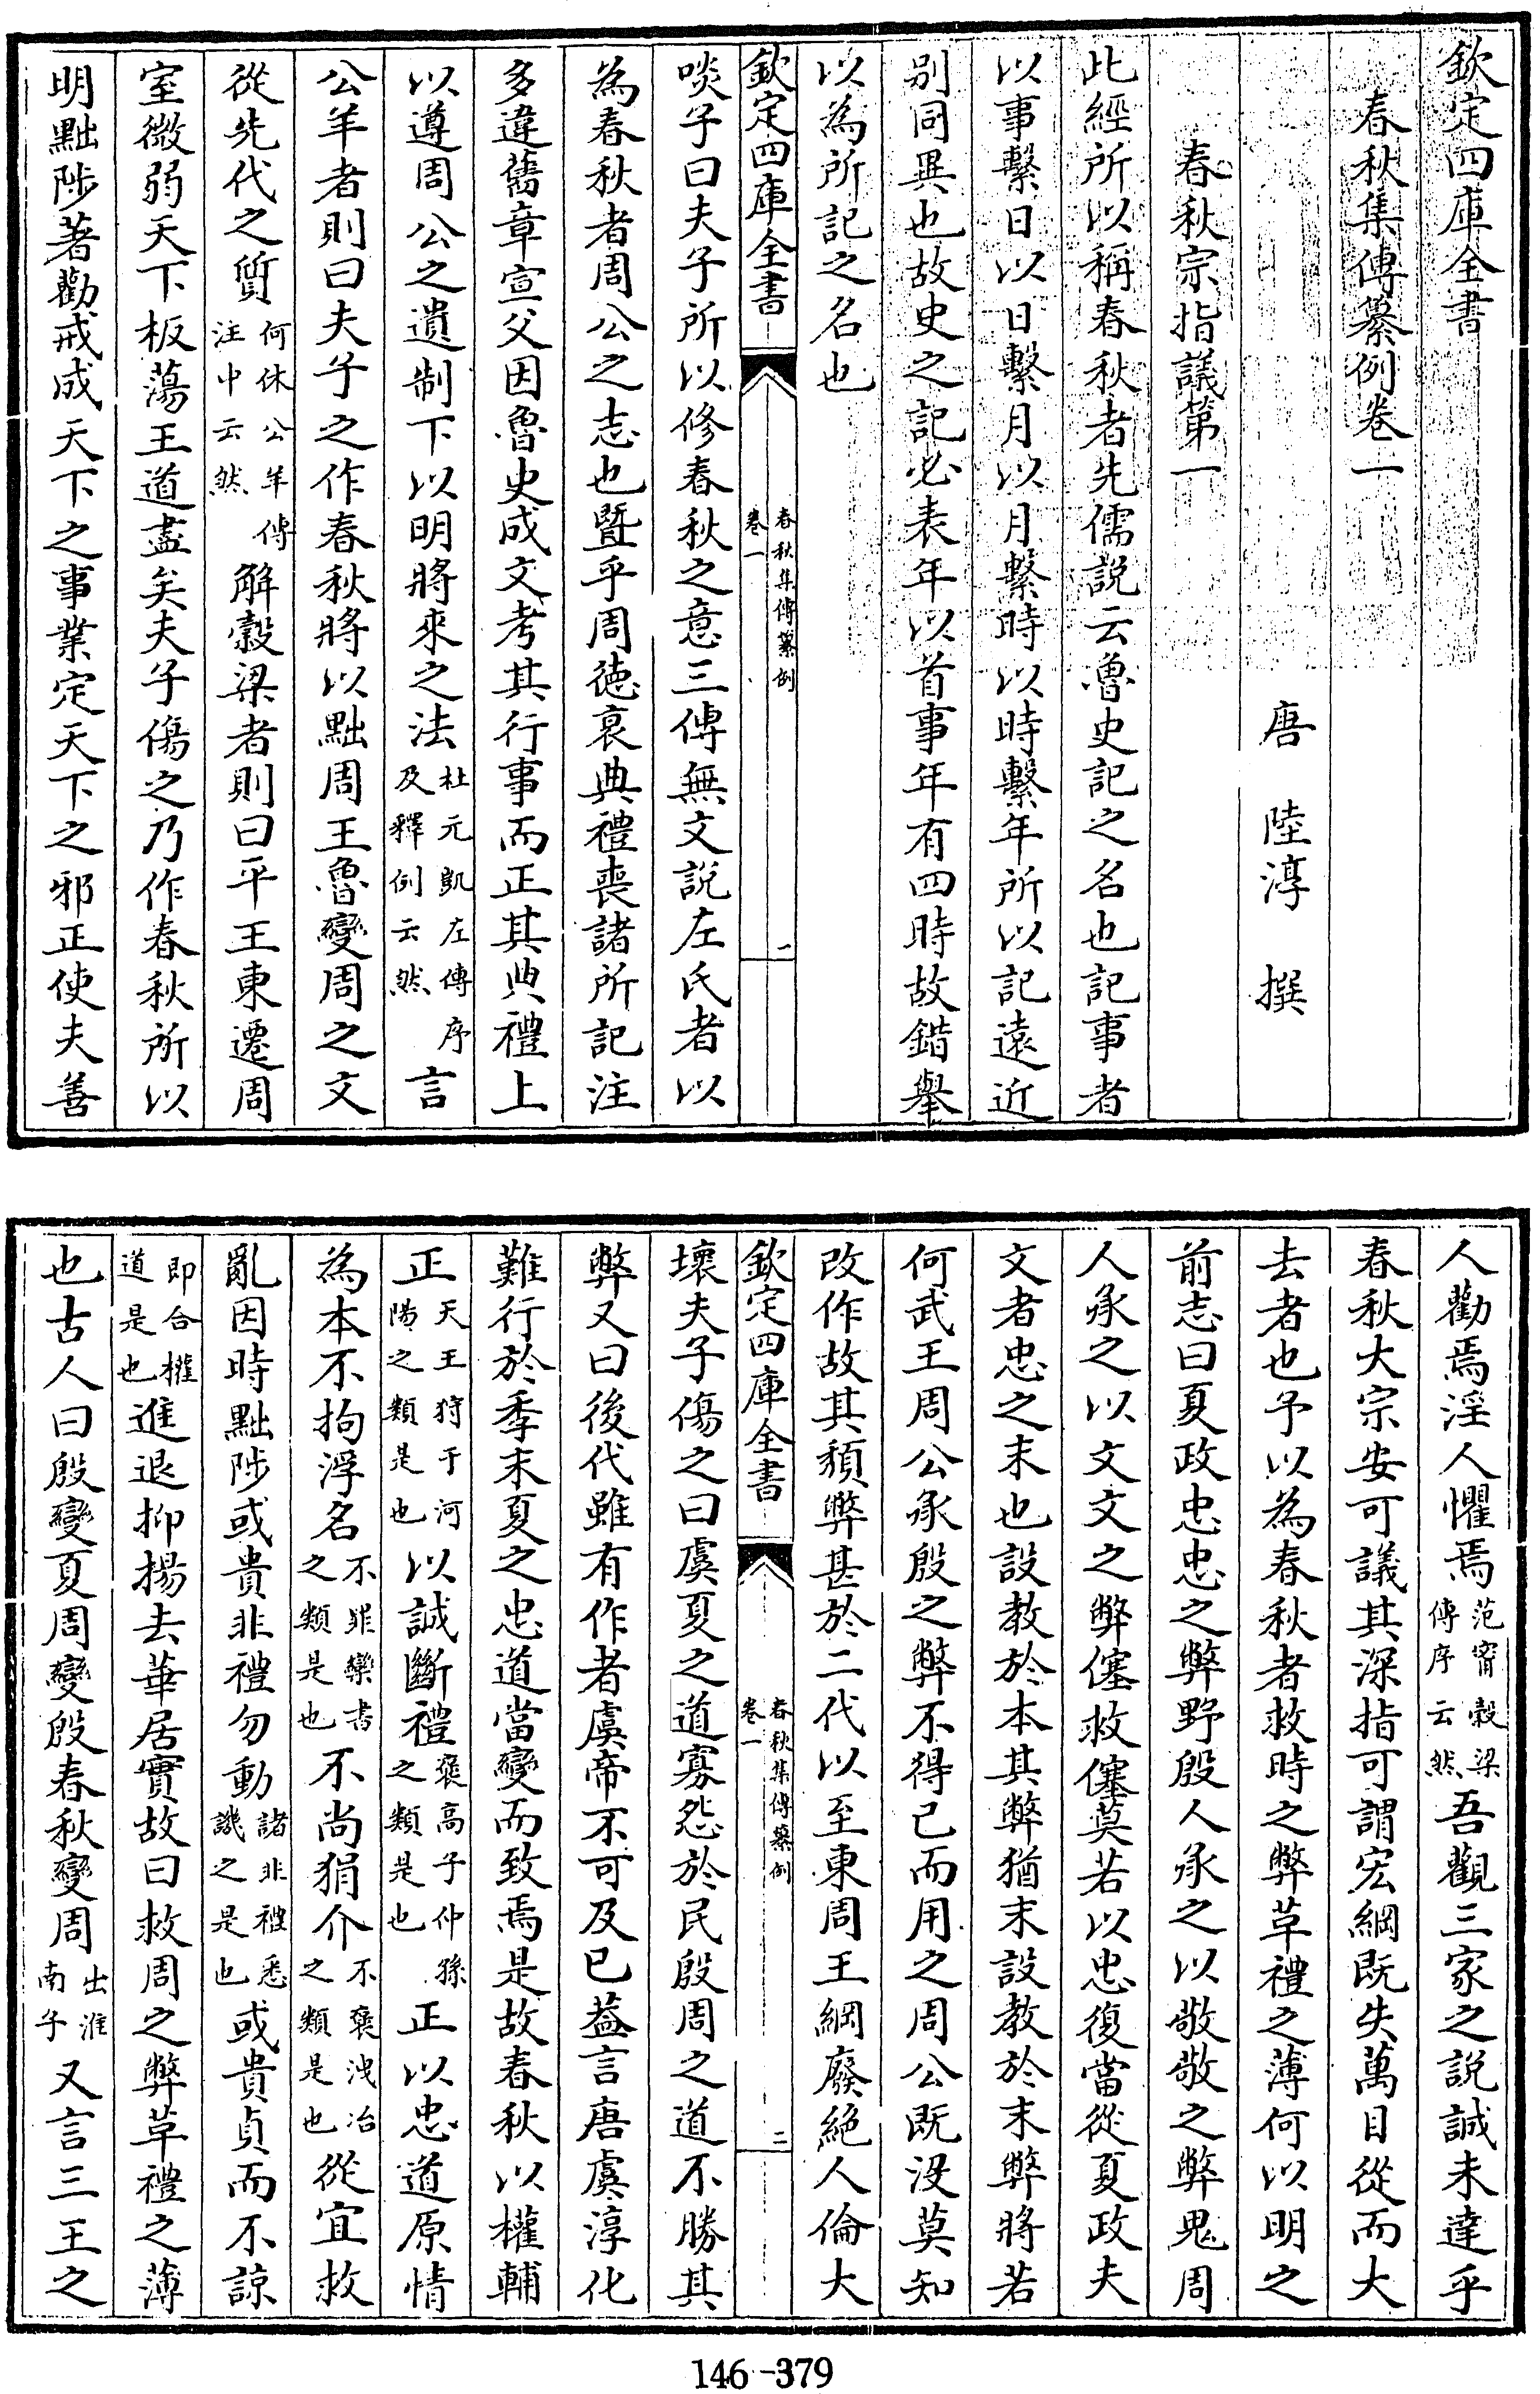 欽定四庫全書
春秋集傳纂例卷一
唐 陸淳 撰
春秋宗指議第一
此經所以稱春秋者先儒説云魯史記之名也記事者
以事繫日以日繫月以月繫時以時繫年所以記遠近
别同異也故史之記必表年以首事年有四時故錯舉
以為所記之名也
欽定四庫全書 春秋集傳纂例 卷一 一
啖子曰夫子所以修春秋之意三傳無文説左氏者以
為春秋者周公之志也暨乎周德衰典禮喪諸所記注
多違舊章宣父因魯史成文考其行事而正其典禮上
以遵周公之遺制下以明將來之法杜元凱左傳序及釋例云然言
公羊者則曰夫子之作春秋將以黜周王魯變周之文
從先代之質何休公羊傳注中云然解穀梁者則曰平王東遷周
室微弱天下板蕩王道盡矣夫子傷之乃作春秋所以
明黜陟著勸戒成天下之事業定天下之邪正使夫善
人勸焉淫人懼焉范甯穀梁傳序云然吾觀三家之説誠未達乎
春秋大宗安可議其深指可謂宏綱既失萬目從而大
去者也予以為春秋者救時之弊革禮之薄何以明之
前志曰夏政忠忠之弊野殷人承之以敬敬之弊鬼周
人承之以文文之弊僿救僿莫若以忠復當從夏政夫
文者忠之末也設教於本其弊猶末設教於末弊將若
何武王周公承殷之弊不得已而用之周公既没莫知
改作故其頽弊甚於二代以至東周王綱廢絶人倫大
欽定四庫全書 春秋集傳纂例 卷一 二
壞夫子傷之曰虞夏之道寡怨於民殷周之道不勝其
弊又曰後代雖有作者虞帝不可及已葢言唐虞淳化
難行於季末夏之忠道當變而致焉是故春秋以權輔
正天王狩于河陽之類是也以誠斷禮褒高子仲孫之類是也正以忠道原情
為本不拘浮名不罪欒書之類是也不尚狷介不褒洩冶之類是也從宜救
亂因時黜陟或貴非禮勿動諸非禮悉譏之是也或貴貞而不諒
即合權道是也進退抑揚去華居實故曰救周之弊革禮之薄
也古人曰殷變夏周變殷春秋變周出淮南子又言三王之
146-379